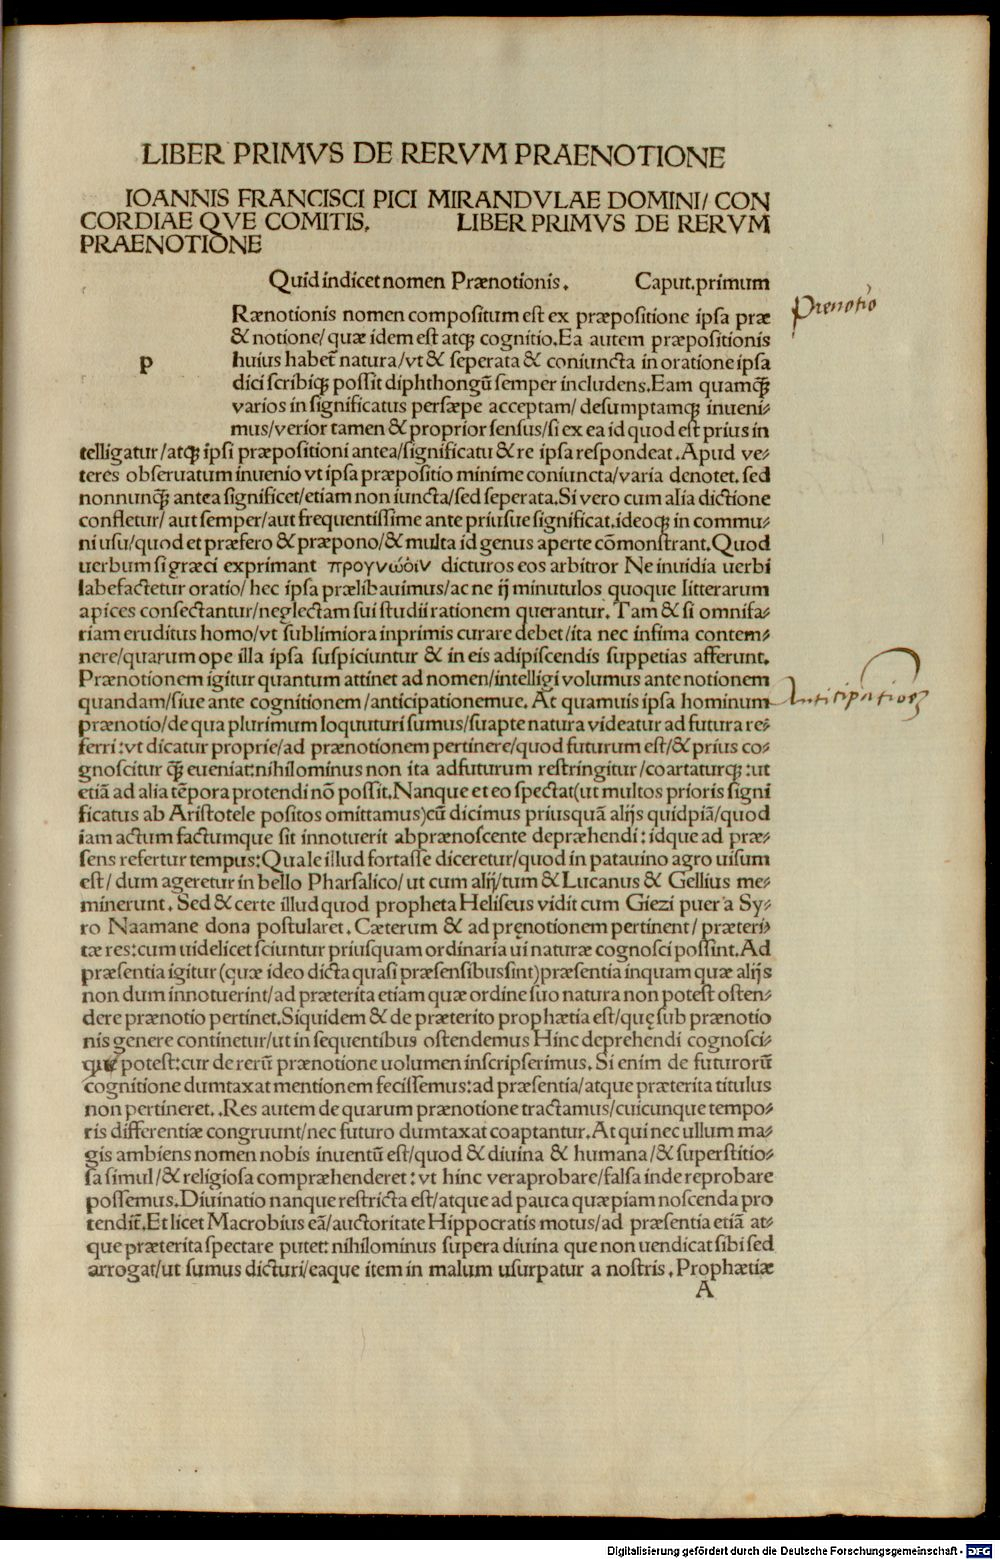 LIBER PRIMVS DE RERVM PRAENOTIONE
IOANNIS FRANCISCI PICI MIRANDVLAE DOMINI/ CON
CORDIAE QVE COMITIS. LIBER PRIMVS DE RERVM
PRAENOTIONE
Quid indicet nomen Prænotionis. Caput.primum
Rænotionis nomen compositum est ex præpositione ipsa præ
Prenotio
& notione/ quæ idem est atqꝫ cognitio.Ea autem præpositionis
p huius habet̃ natura/vt & seperata & coniuncta in oratione ipsa
dici scribiqꝫ possit diphthongũ semper includens.Eam quamqꝫ̃
varios in significatus persæpe acceptam/ desumptamqꝫ inueni⸗
mus/verior tamen & proprior sensus/si ex ea id quod est prius in
telligatur/atqꝫ ipsi præpositioni antea/significatu & re ipsa respondeat.Apud ve⸗
teres obseruatum inuenio vt ipsa præpositio minime coniuncta/varia denotet. sed
nonnunqꝫ̃ antea significet/etiam non iuncta/sed seperata.Si vero cum alia dictione
confletur/ aut semper/aut frequentissime ante priusue significat.ideoqꝫ in commu⸗
ni usu/quod et præfero & præpono/& multa id genus aperte cõmonstrant.Quod
uerbum si græci exprimant προγνώσιν dicturos eos arbitror Ne inuidia uerbi
labefactetur oratio/ hec ipsa prælibauimus/ac ne ij minutulos quoque litterarum
apices consectantur/neglectam sui studii rationem querantur. Tam & si omnifa⸗
riam eruditus homo/vt sublimiora inprimis curare debet/ita nec infima contem⸗
nere/quarum ope illa ipsa suspiciuntur & in eis adipiscendis suppetias afferunt.
Prænotionem igitur quantum attinet ad nomen/intelligi volumus ante notionem
quandam/siue ante cognitionem/anticipationemue. At quamuis ipsa hominum
Anticipationes
prænotio/de qua plurimum loquuturi sumus/suapte natura videatur ad futura re⸗
ferri:vt dicatur proprie/ad prænotionem pertinere/quod futurum est/& prius co⸗
gnoscitur qꝫ̃ eueniat:nihilominus non ita adfuturum restringitur/coartaturqꝫ:ut
etiã ad alia tẽpora protendi nõ possit.Nanque et eo spectat(ut multos prioris signi
ficatus ab Aristotele positos omittamus)cũ dicimus priusquã alijs quidpiã/quod
iam actum factumque sit innotuerit abprænoscente depræhendi:idque ad præ⸗
sens refertur tempus:Quale illud fortasse diceretur/quod in patauino agro uisum
est/ dum ageretur in bello Pharsalico/ut cum alij/tum & Lucanus & Gellius me⸗
minerunt. Sed & certe illud quod propheta Heliseus vidit cum Giezi puer a Sy⸗
ro Naamane dona postularet. Cæterum & ad pręnotionem pertinent/ præteri⸗
tæ res:cum uidelicet sciuntur priusquam ordinaria ui naturæ cognosci possint.Ad
præsentia igitur(quæ ideo dicta quasi præsensibus sint)præsentia inquam quæ alijs
non dum innotuerint/ad præterita etiam quæ ordine suo natura non potest osten⸗
dere prænotio pertinet.Siquidem & de præterito prophætia est/quę sub prænotio
nis genere continetur/ut in sequentibus ostendemus Hinc deprehendi cognosci⸗
que potest:cur de rerũ prænotione uolumen inscripserimus. Si enim de futurorũ
cognitione dumtaxat mentionem fecissemus:ad præsentia/atque præterita titulus
non pertineret. .Res autem de quarum prænotione tractamus/cuicunque tempo⸗
ris differentiæ congruunt/nec futuro dumtaxat coaptantur.At qui nec ullum ma⸗
gis ambiens nomen nobis inuentũ est/quod & diuina & humana/& superstitio⸗
sa simul/& religiosa compræhenderet:vt hinc vera probare/falsa inde reprobare
possemus.Diuinatio nanque restricta est/atque ad pauca quæpiam noscenda pro
tendit̃.Et licet Macrobius eã/auctoritate Hippocratis motus/ad præsentia etiã at⸗
que præterita spectare putet:nihilominus supera diuina que non uendicat sibi sed
arrogat/ut sumus dicturi/eaque item in malum usurpatur a nostris.Prophætiæ
A
Digitalisierung gefördert durch die Deutsche Forschungsgemeinschaft - DFG